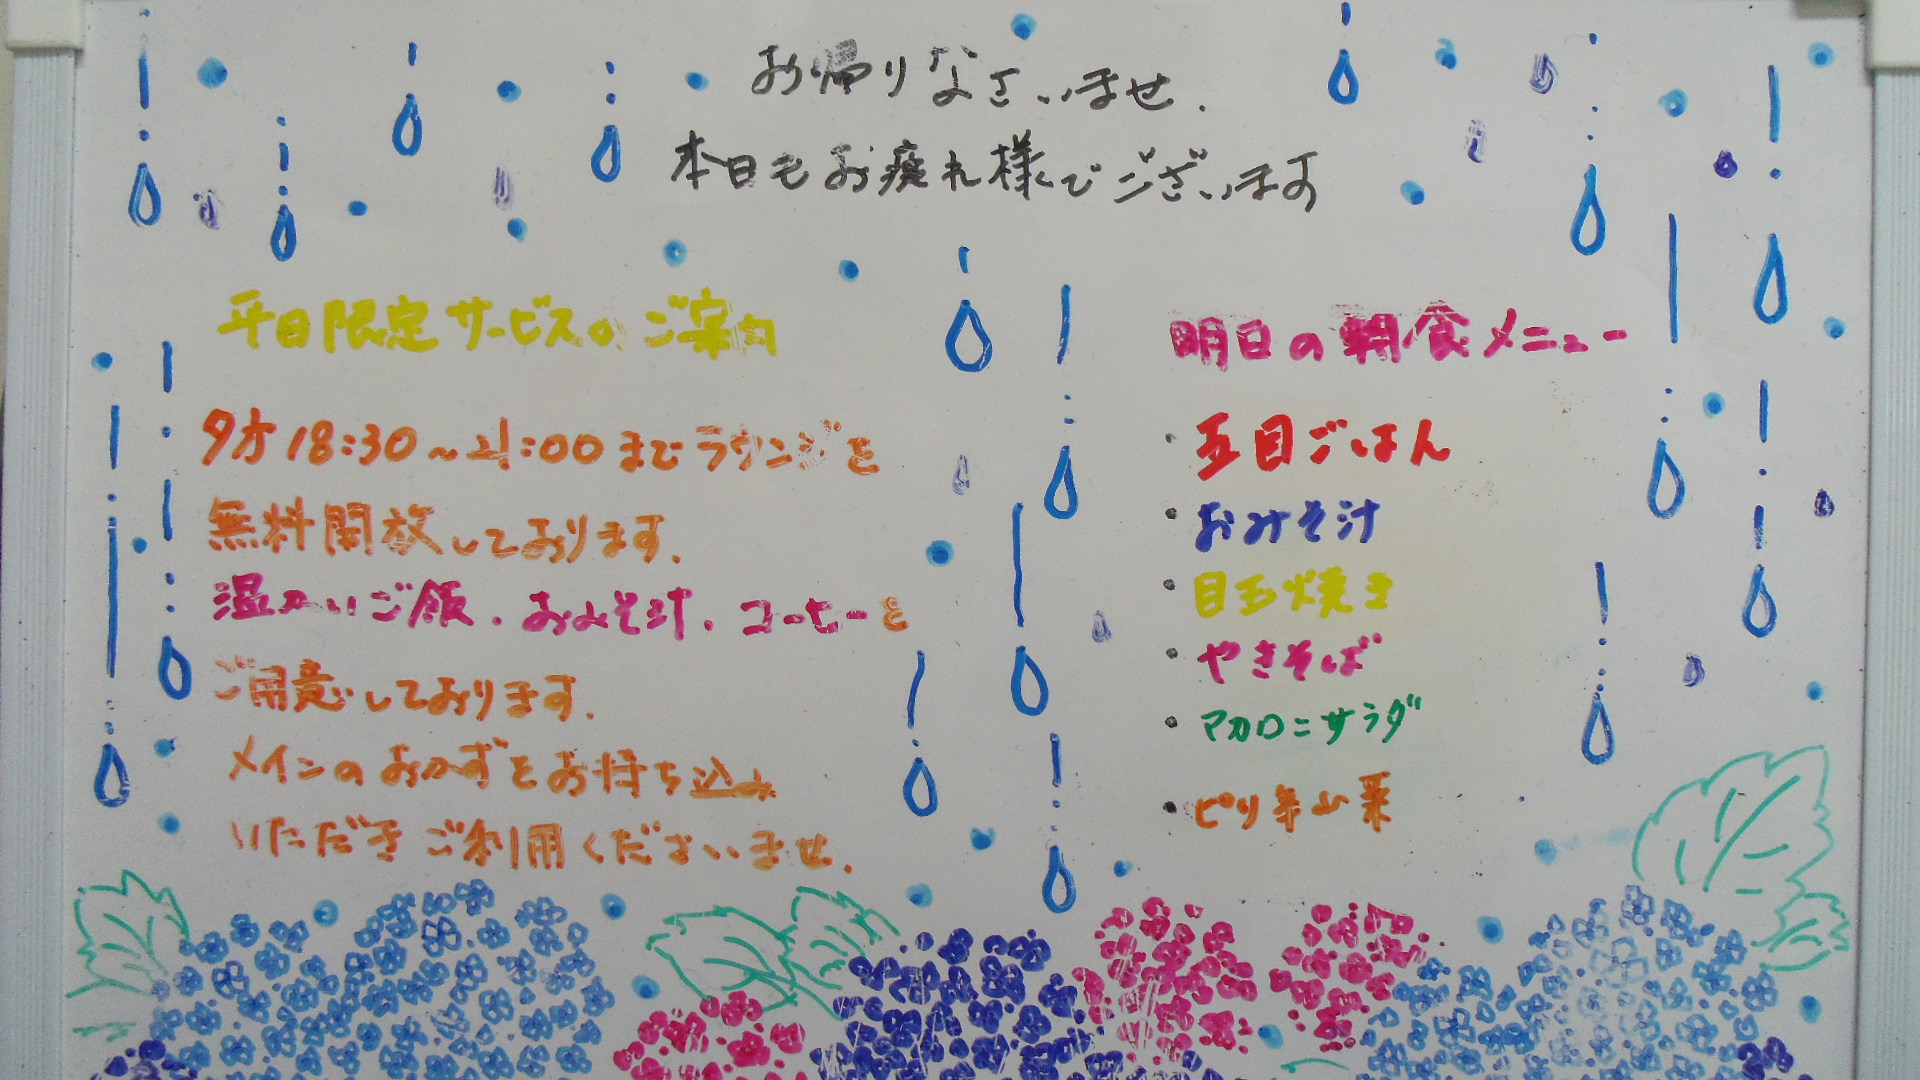 お帰りなさいませ.
本日もお疲れ様でございます
平日限定サービスのご案内
夕方18:30～21:00までラウンジを
無料開放しております.
温かいご飯.おみそ汁.コーヒーを
ご用意しております.
メインのおかずをお持ち込み
いただきご利用くださいませ.
明日の朝食メニュー
・五目ごはん
・おみそ汁
・目玉焼き
・やきそば
・マカロニサラダ
・ピリ辛山菜